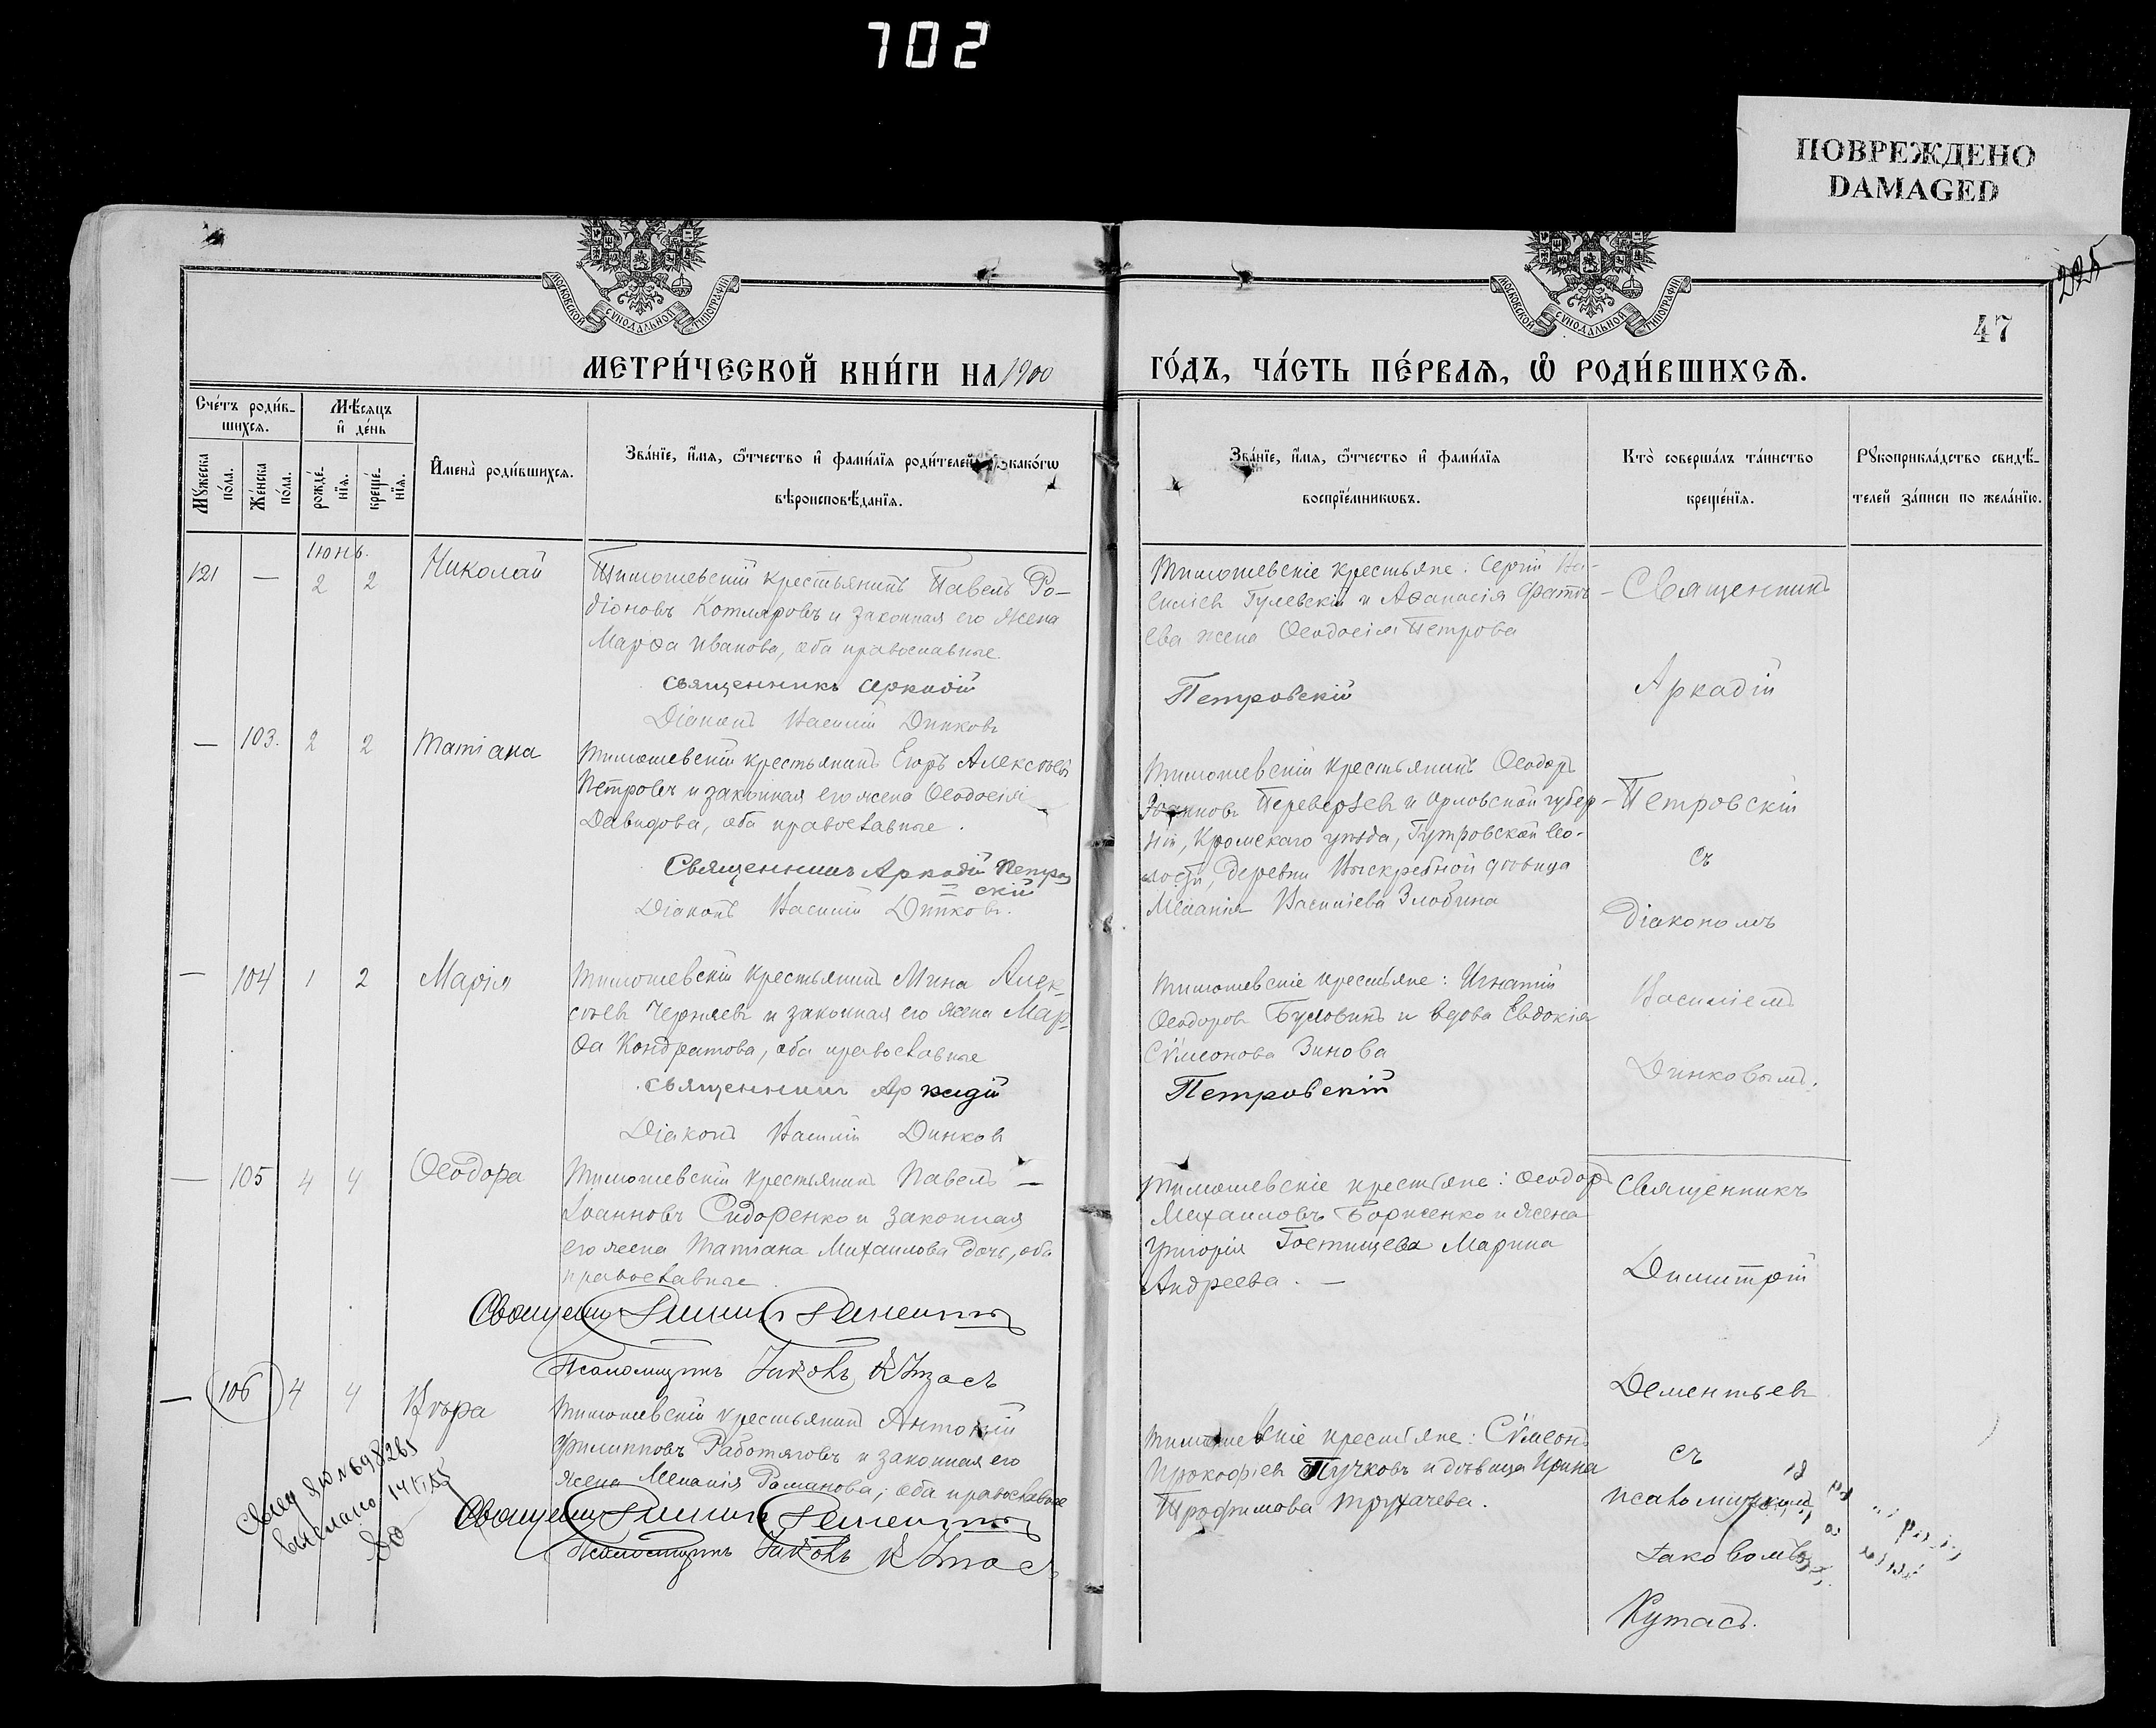 702
ПОВРЕЖДЕНО
DAMAGED
МОСКОВСКОЙ СѴНОДАЛЬНОЙ ТИПОГРАФІИ
МОСКОВСКОЙ СѴНОДАЛЬНОЙ ТИПОГРАФІИ
47
МЕТРИ́ЧЕСКОЙ КНИ́ГИ НА 1900
ГО́ДЪ, ЧА́СТЬ ПЕ́РВАѦ, Ѡ҆ РОДИ́ВШИХСѦ.
Сче́тъ роди́в-
шихсѧ.
Мꙋ́жеска по́ла.
Же́нска по́ла.
Мѣ́сѧцъ
и҆ де́нь
рожде́нїѧ.
креще́нїѧ.
И҆мена̀ роди́вшихсѧ.
Зва́нїе, и҆́мѧ, ѻ҆́тчество и҆ фами́лїѧ роди́телей како́гѡ
вѣроисповѣ́данїѧ.
Зва́нїе, и҆́мѧ, ѻ҆́тчество и҆ фами́лїѧ
воспрїе́мникѡвъ.
Кто̀ соверша́лъ та́инство
креще́нїѧ.
Рꙋкоприкла́дство свидѣ́-
телей за́писи по жела́нїю.
Іюнь.
121 — 2 2 Николай
Тимошевскій крестьянинъ Павелъ Ро-
діоновъ Котляровъ и законная его жена
Марѳа Иванова, оба православные.
Священникъ Аркадій
Діаконъ Василій Динковъ
Тимошевскіе крестьяне: Сергій Ва-
силіев Гулевскій и Аѳанасія
ева жена Ѳеодосія Петрова
Петровскій
Священникъ
Аркадій
Петровскій
съ
діакономъ
Василіемъ
Динковымъ.
— 103. 2 2 Татіана
Тимошевскій крестьянинъ Егоръ Алексѣевъ
Петровъ и законная его жена Ѳеодосія
Давидова, оба православные.
Священникъ Аркадій Петров
скій
Діаконъ Василій Динковъ.
Тимошевскій крестьянинъ Ѳеодоръ
Іоанновъ Переверзевъ и Орловской губер-
ніи, Кромскаго уѣзда, Гутровской во-
лости, деревни дѣвица
Меланія Василіева Злобина
— 104 1 2 Марія
Тимошевскій крестьянинъ Мина Алек-
сѣевъ Черняевъ и законная его жена Мар-
ѳа Кондратова, оба православные
Священникъ Аркадій
Діаконъ Василій Динковъ
Тимошевскіе крестьяне: Игнатій
Ѳеодоровъ и вдова Евдокія
Сѵмеонова Зинова
Петровскій
— 105 4 4 Ѳеодора
Тимошевскій крестьянинъ Павелъ —
Іоанновъ Сидоренко и законная
его жена Татіана Михаилова дочь, оба
православные.
Священникъ Димитрій Дементьевъ
Псаломщикъ Іаковъ Кутасъ
Тимошевскіе крестьяне: Ѳеодоръ
Михаиловъ Борисенко и жена
Григорія Гостищева Марина
Андреева. —
Священникъ
Димитрій
Дементьевъ
съ
псаломщикомъ
Іаковомъ
Кутасъ.
— 106 4 4 Вѣра
Тимошевскій крестьянинъ Антоній
Филипповъ Работяговъ и законная его
жена Меланія Романова, оба православные
Священникъ Димитрій Дементьевъ
Псаломщикъ Іаковъ Кутасъ
Тимошевскіе крестьяне: Сѵмеонъ
Прокофіевъ Пучковъ и дѣвица Ирина
Трофимова Трухачева.